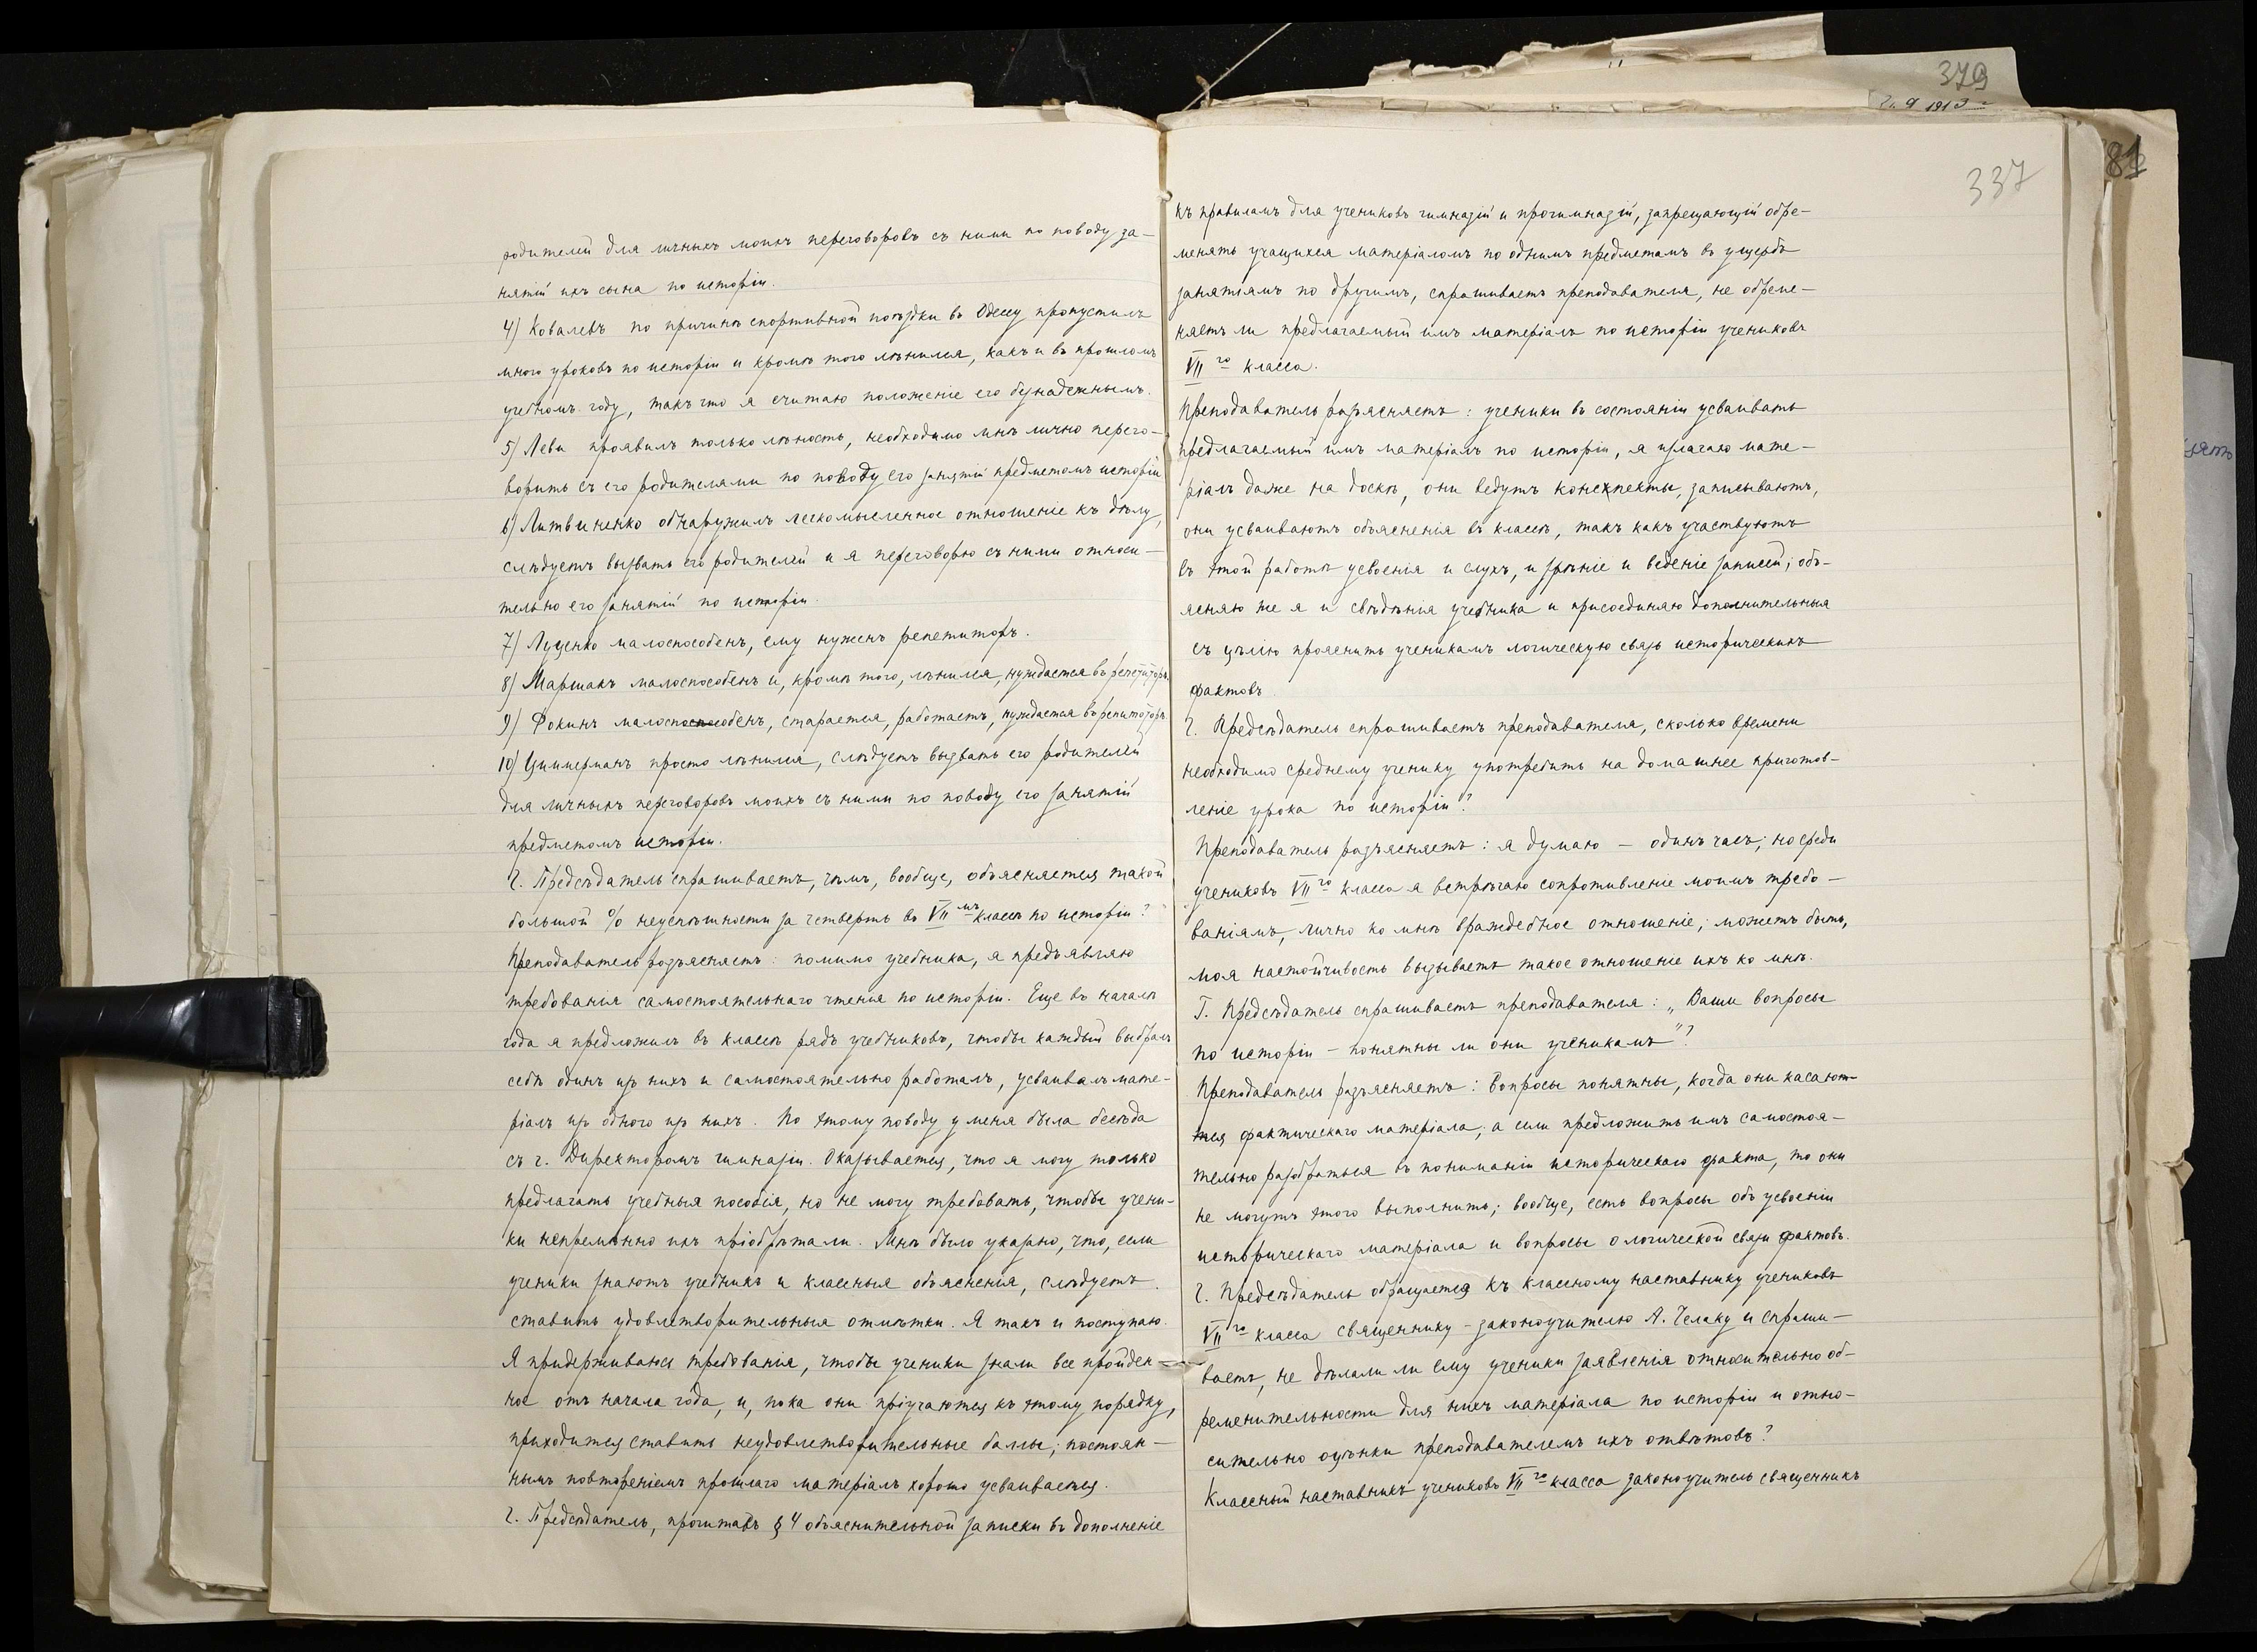 родителей для личныхъ моихъ переговоровъ съ ними по поводу за-
нятій ихъ сына по исторіи.
4) Ковалевъ по причинѣ спортивной поѣздки въ Одессу пропустилъ
много уроковъ по исторіи и кромѣ того лѣнился, какъ и въ прошломъ
учебномъ году, такъ что я считаю положеніе его безнадежнымъ.
5) Леви проявилъ только лѣность, необходимо мнѣ лично перего-
ворить съ его родителями по поводу его занятій предметомъ исторіи
6) Литвиненко обнаружилъ легкомысленное отношеніе къ дѣлу,
слѣдуетъ вызвать его родителей и я переговорю съ ними относи-
тельно его занятій по исторіи.
7) Луценко малоспособенъ, ему нуженъ репетиторъ.
8) Маршакъ малоспособенъ и, кромѣ того, лѣнился, нуждается въ репетиторѣ.
9) Фокинъ малоспособенъ, старается, работаетъ, нуждается въ репититорѣ.
10) Циммерманъ просто лѣнился, слѣдуетъ вызвать его родителей
для личныхъ переговоровъ моихъ съ ними по поводу его занятій
предметомъ исторіи.
Г. Предсѣдатель спрашиваетъ, чѣмъ, вообще, объясняется такой
большой % неуспѣшности за четверть въ VII мъ классѣ по исторіи?
Преподаватель разъясняетъ: помимо учебника, я предъявляю
требованія самостоятельнаго чтенія по исторіи. Еще въ началѣ
года я предложилъ въ классѣ рядъ учебниковъ, чтобы каждый выбралъ
себѣ одинъ изъ нихъ и самостоятельно работалъ, усваивалъ мате-
ріалъ изъ одного изъ нихъ. По этому поводу у меня была бесѣда
съ г. Директоромъ гимназіи. Оказывается, что я могу только
предлагать учебныя пособія, но не могу требовать, чтобы учени-
ки непремѣнно ихъ пріобрѣтали. Мнѣ было указано, что, если
ученики знаютъ учебникъ и классныя объясненія, слѣдуетъ
ставить удовлетворительныя отмѣтки. Я такъ и поступаю.
Я придерживаюсь требованія, чтобы ученики знали все пройден-
ное отъ начала года, и, пока они пріучаются къ этому порядку,
приходится ставить неудовлетворительные баллы; постоян-
нымъ повтореніемъ прошлаго матеріалъ хорошо усваивается.
Г. Предсѣдатель, прочитавъ § 4 объяснительной записки въ дополненіе
379
337
къ правиламъ для учениковъ гимназій и прогимназій, запрещающій обре-
менять учащихся матеріаломъ по однимъ предметамъ въ ущербъ
занятіямъ по другимъ, спрашиваетъ преподавателя, не обреме-
няетъ ли предлагаемый имъ матеріалъ по исторіи учениковъ
VII го класса.
Преподаватель разъясняетъ: ученики въ состояніи усваивать
предлагаемый имъ матеріалъ по исторіи, я излагаю мате-
ріалъ даже на доскѣ, они ведутъ конспекты, записываютъ,
они усваиваютъ объясненія въ классѣ, такъ какъ участвуютъ
въ этой работѣ усвоенія и слухъ, и зрѣніе и веденіе записей; объ-
ясняю же я и свѣдѣнія учебника и присоединяю дополнительныя
съ цѣлію прояснить ученикамъ логическую связь историческихъ
фактовъ.
Г. Предсѣдатель спрашиваетъ преподавателя, сколько времени
необходимо среднему ученику употребить на домашнее приготов-
леніе урока по исторіи?
Преподаватель разъясняетъ: я думаю – одинъ часъ; но среди
учениковъ VII го класса я встрѣчаю сопротивленіе моимъ требо-
ваніямъ, лично ко мнѣ враждебное отношеніе; можетъ быть,
моя настойчивость вызываетъ такое отношеніе ихъ ко мнѣ.
Г. Предсѣдатель спрашиваетъ преподавателя: „Ваши вопросы
по исторіи – понятны ли они ученикамъ"?
Преподаватель разъясняетъ: Вопросы понятны, когда они касают-
тся фактическаго матеріала; а если предложить имъ самостоя-
тельно разобраться въ пониманіи историческаго факта, то они
не могутъ этого выполнить; вообще, есть вопросы объ усвоеніи
историческаго матеріала и вопросы о логической связи фактовъ.
Г. Предсѣдатель обращается къ классному наставнику учениковъ
VII го класса священнику-законоучителю А. Челаку и спраши-
ваетъ, не дѣлали ли ему ученики заявленія относительно об-
ременительности для нихъ матеріала по исторіи и отно-
сительно оцѣнки преподавателемъ ихъ отвѣтовъ?
Классный наставникъ учениковъ VII го класса законоучитель священникъ